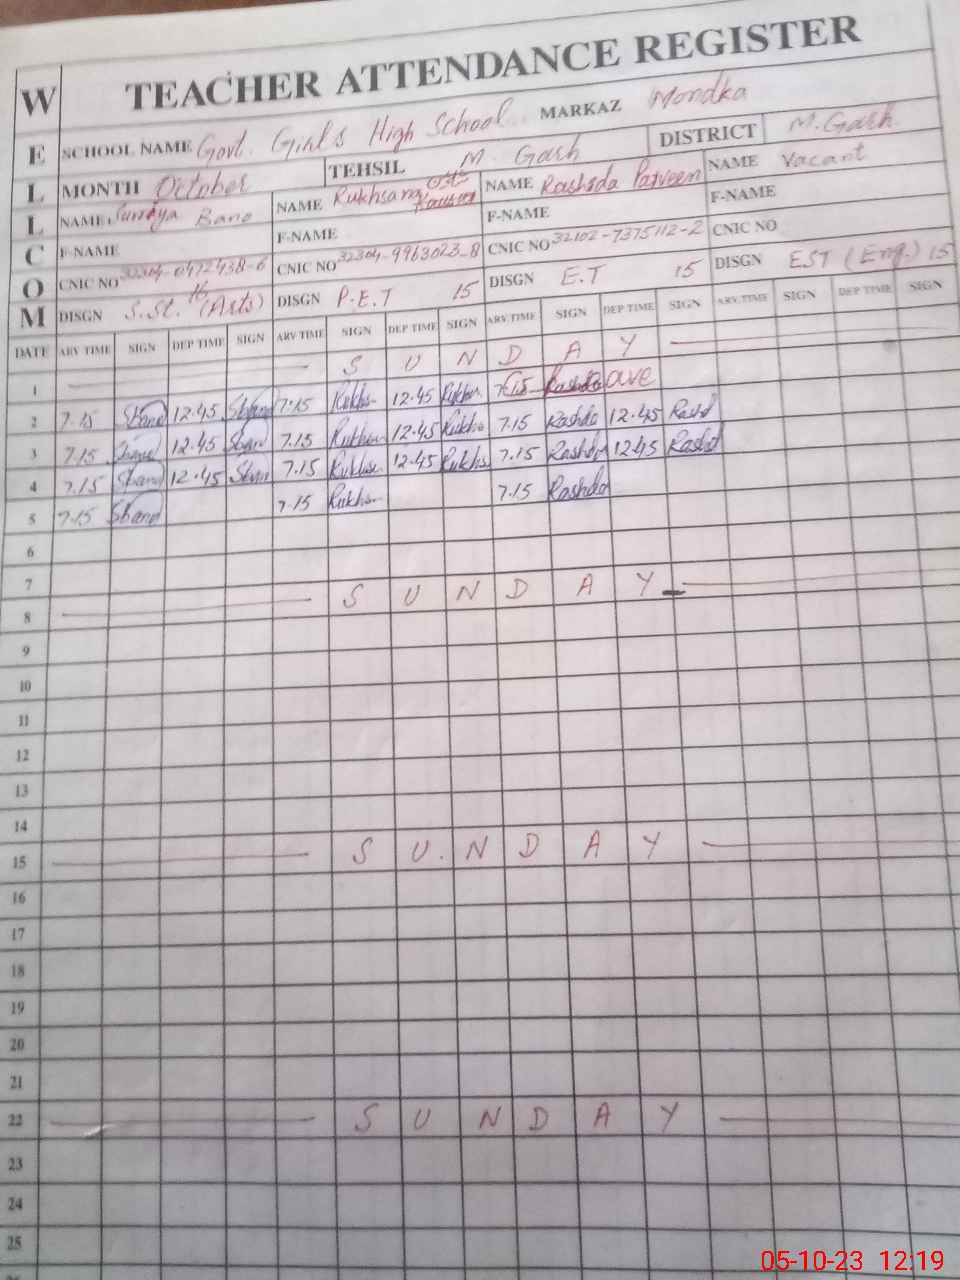 WELLCOM
TEACHER ATTENDANCE REGISTER
SCHOOL NAME Govt. Girls High School MARKAZ Mondka
MONTH October TEHSIL M. Garh DISTRICT M. Garh
NAME Surrdya Bano NAME Rukhsana NAME Rashda Parveen NAME Vacant
F-NAME F-NAME F-NAME F-NAME
CNIC NO 32304-0472438-6 CNIC NO 32304-9963023-8 CNIC NO 32102-7375112-2 CNIC NO
DISGN S.St. (Arts) DISGN P.E.T 15 DISGN E.T 15 DISGN EST (Eng.) 15
DATE ARV TIME SIGN DEP TIME SIGN ARV TIME SIGN DEP TIME SIGN ARV TIME SIGN DEP TIME SIGN ARV TIME SIGN DEP TIME SIGN
1 S U N D A Y
2 7.15 Sbano 12.45 Sbano 7.15 Rukhs 12.45 Rukhs. 7.15 Rashda
3 7.15 12.45 Sban 7.15 Rukhsa 12.45 Rukhs 7.15 Rashda 12.45 Rashd
4 7.15 Sbano 12.45 Sban 7.15 Rukhsa 12.45 Rukhs 7.15 Rashda 12.45 Rashd
5 7.15 Sbano 7.15 Rukhs 7.15 Rashda
6
7
8 S U N D A Y
9
10
11
12
13
14
15 S U. N D A Y
16
17
18
19
20
21
22 S U N D A Y
23
24
25
05-10-23 12:19